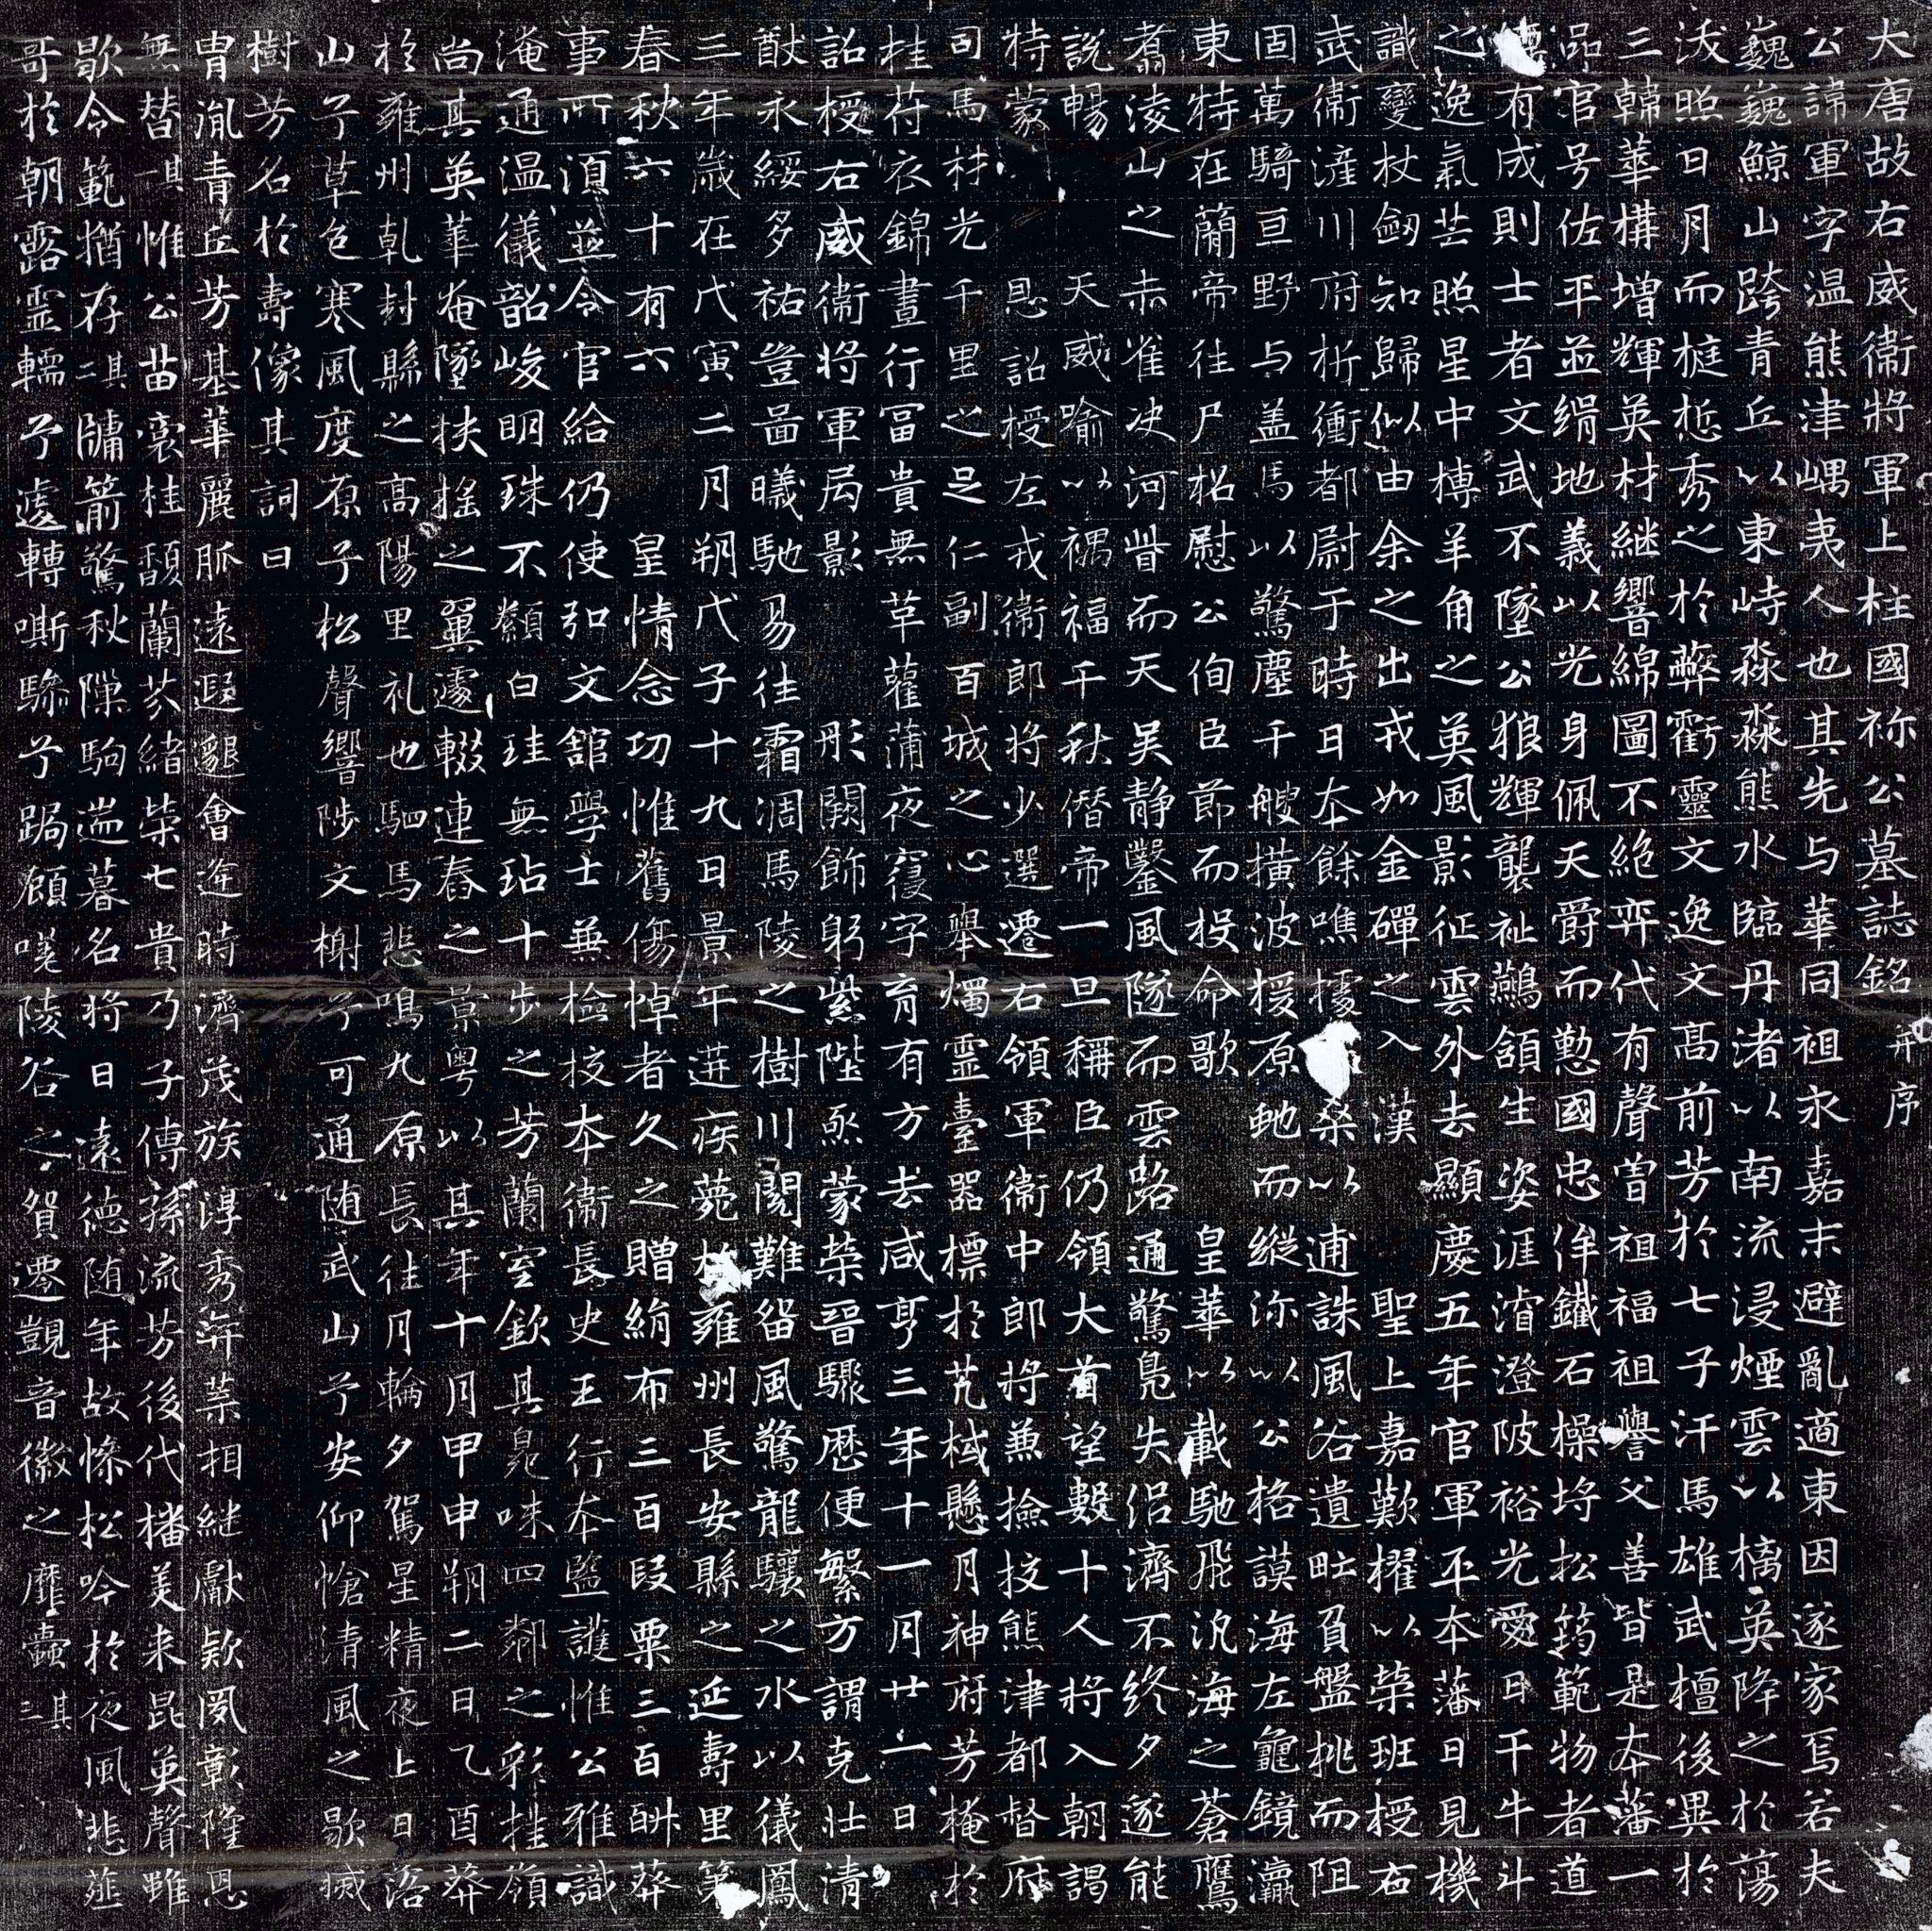 大唐故右威衛將軍上柱國祢公墓誌銘 并序
公諱軍字温熊津嵎夷人也其先与華同祖永嘉末避亂適東因遂家焉若夫
巍巍鯨山跨青丘以東峙淼淼熊水臨丹渚以南流浸煙雲以樆英降之於蕩
沃照日月而榳惁秀之於蔽虧靈文逸文高前芳於七子汗馬雄武擅後異於
三韓華構增輝英材継響綿圖不絶弈代有聲曽祖福祖譽父善皆是夲藩一
品官号佐平並緝地義以光身佩天爵而懃國忠侔鐵石操埒松筠範物者道
德有成則士者文武不墜公狼輝襲祉鷰頷生姿涯濬澄陂裕光愛日干牛斗
之逸氣芒照星中搏羊角之英風影征雲外去顯慶五年官軍平夲藩日見機
識變杖劔知歸似由余之出戎如金磾之入 漢 聖上嘉歎擢以榮班授右
武衛滻川府析衝都尉于時日夲餘噍據桒以逋誅風谷遺甿負盤桃而阻
固萬騎亘野与盖馬以驚塵千艘横波援原虵而縱沵以 公格謨海左龜鏡瀛
東特在簡帝往尸招慰公佝臣節而投命歌 皇華以載馳飛汎海之蒼鷹
翥凌山之赤雀决河眥而天吳静鑿風隧而雲路通驚鳧失侶濟不終夕遂能
説暢 天威喻以禍福千秋僭帝一旦稱臣仍領大首望數十人將入朝謁
特蒙 恩詔授左戎衛郎將少選遷右領軍衛中郎將兼檢挍熊津都督府
司馬材光千里之足仁副百城之心舉燭靈臺器標於芃棫懸月神府芳掩於
桂苻衣錦晝行富貴無革雚蒲夜寑字育有方去咸亨三年十一月廿一日
詔授右威衛將軍局影 彤闕飾躬紫陛亟蒙榮晉驟歷便繁方謂克壮清
猷永綏多祐豈啚曦馳易往霜凋馬陵之樹川閲難留風驚龍驤之水以儀鳳
三年歳在戊寅二月朔戊子十九日景午遘疾薨於雍州長安縣之延壽里第
春秋六十有六 皇情念功惟舊傷悼者久之贈絹布三百段粟三百斛葬
事所湏並令官給仍使弘文舘學士兼檢挍夲衛長史王行夲監護惟公雅識
淹通温儀韶峻明珠不纇白珪無玷十步之芳蘭室欽其臭味四鄰之彩桂嶺
尚其英華奄墜扶搖之翼遽輟連舂之景粤以其年十月甲申朔二日乙酉葬
於雍州乾封縣之高陽里礼也駟馬悲鳴九原長往月輪夕駕星精夜上日落
山兮草色寒風度原兮松聲響陟文榭兮可通随武山兮安仰愴清風之歇滅
樹芳名於壽像其詞曰
胄胤青丘芳基華麗脈遠遐邈會逢時濟茂族淳秀弈葉相継獻欵夙彰隆恩
無替 其一 惟公苗裔桂馥蘭芬緒榮七貴乃子傳孫流芳後代播美来昆英聲雖
歇令範猶存 其二 牖箭驚秋隙駒遄暮名將日遠德随年故慘松吟於夜風悲薤
哥於朝露靈轜兮遽轉嘶驂兮跼顧嗟陵谷之貿遷覬音徽之靡蠹 其三